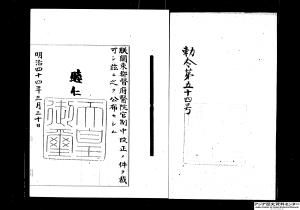 勅令第五十四号
朕関東都督府医院官制中改正ノ件ヲ裁
可シ茲ニ之ヲ公布セシム
睦仁
天皇
御璽
明治四十四年三月三十日
アジア歴史資料センター